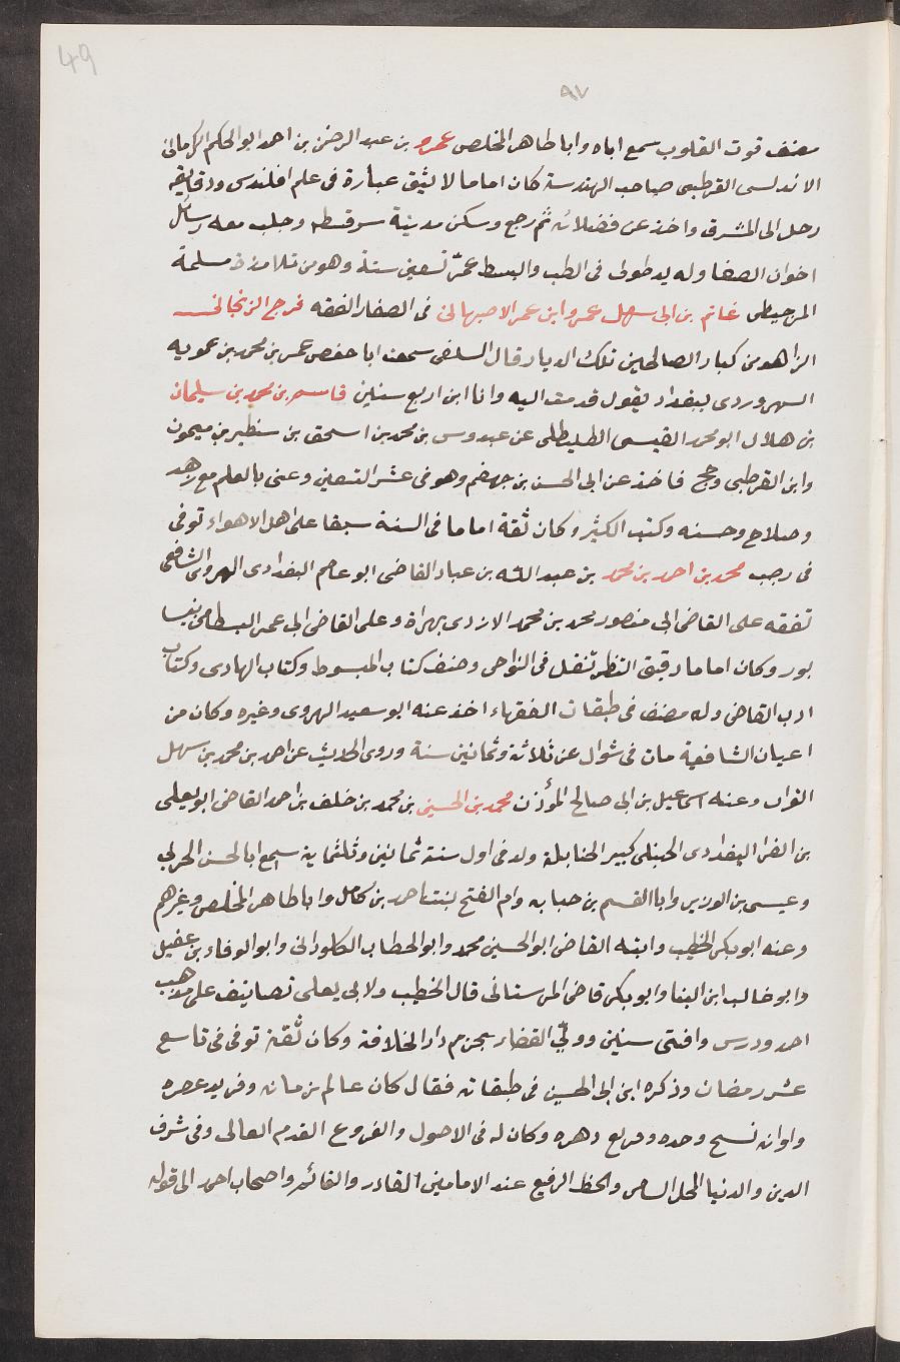 49
٨٧
مصنف قوت القلوب سمع اباه وابا طاهر المخلص عمرو بن عبد الرحمن بن احمد ابو الحكم الكرماني
الاندلسى القرطبى صاحب الهندسة كان اماما لا يشق غبارة فى علم اقلندس ودقايقه
رحل الى المشرق واخذ عن فضلائه ثم رجع وسكن مدينة سرقسطه وجلب معه رسائل
اخوان الصفا وله يد طولى فى الطب والبسط عمر تسعين سنة وهو من تلامذة مسلمة
المرجيطى غانم بن ابى سهل عمر وابن عمر الاصبهانى فى الصفار الفقه فرج الزنجانى
الزاهد من كبار الصالحين تلك الديار قال السلفى سمعت ابا حفص عمر بن محمد بن عمويه
السهروردى ببغداد يقول قدمت اليه وانا ابن اربع سنين قاسم بن محمد بن سليمان
بن هلال ابو محمد القيسى الطليطلى عن عبدوس بن محمد بن اسحق بن سنطير بن ميمون
وابن القرطبى وحج فاخذ عن ابى الحسن بن جهضم وهو فى عشر التسعين وعنى بالعلم مع زهد
وصلاح وحسنه وكتب الكثير وكان ثقة اماما فى السنة سيفا على اهل الاهواء توفى
فى رجب محمد بن احمد بن محمد بن عبد الله بن عباد القاضى ابو عاصم البغدادى الهروى الشافعى
تفقه على القاضى ابى منصور محمد بن محمد الازدى بهراة وعلى القاضى ابى عمر البسطامى بنيسا
بور وكان اماما دقيق النظر تنقل فى النواحى وصنف كتاب المبسوط وكتاب الهادى وكتاب
ادب القاضى وله مصنف فى طبقات الفقهاء اخذ عنه ابو سعيد الهروى وغيره وكان من
اعيان الشافعية مات فى شوال عن ثلاثة وثمانين سنة وروى الحديث عن احمد بن محمد بن سهل
القراب وعنه اسماعيل بن ابى صالح المؤذن محمد بن الحسين بن محمد بن خلف بن احمد القاضى ابو يعلى
بن الفرا البغدادى الحنبلى كبير الحنابلة ولد فى اول سنة ثمانين وثلثماية سمع ابا الحسن الحربى
وعيسى بن الوزير وابا القسم بن حبابه وام الفتح بنت احمد بن كامل وابا طاهر المخلص وغيرهم
وعنه ابو بكر الخطيب وابنه القاضى ابو الحسين محمد وابو الخطاب الكلوذانى وابو الوفاء بن عقيل
وابو غالب ابن البنا وابو بكر قاضى المرستانى قال الخطيب ولابى يعلى تصانيف على مذهب
احمد ودرس وافتى سنين وولي القضاء بحريم دار الخلافة وكان ثقة توفى فى تاسع
عشر رمضان وذكره ابن ابى الحسين فى طبقاته فقال كان عالم زمانه وفريد عصره
واوانه نسيج وحده وقريع دهره وكان له فى الاصول والفروع القدم العالى وفى شرف
الدين والدنيا المحل السامى والحظ الرفيع عند الامامين القادر والقائم واصحاب احمد الى قوله